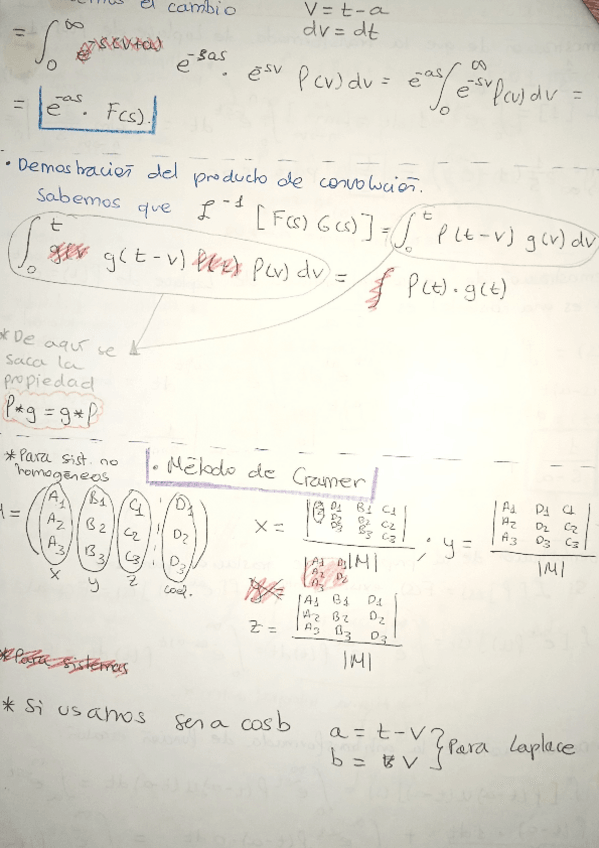 el cambio
V = t - a
dv = dt
= ∫₀^∞ e^-s(v+a) e^-sas · e^-sv f(v) dv = e^-as ∫₀^∞ e^-sv f(v) dv =
= e^-as · F(s).
• Demostración del producto de convolución.
Sabemos que ℒ⁻¹ [F(s) G(s)] = ∫₀^t f(t-v) g(v) dv
∫₀^t g(t-v) f(v) dv = f(t) · g(t)
* De aquí se
saca la
propiedad
f*g = g*f
* Para sist. no
homogéneos
• Método de Cramer
A₁ B₁ C₁ D₁
A₂ B₂ C₂ D₂
A₃ B₃ C₃ D₃
x y z
x = |D₁ B₁ C₁ D₂ B₂ C₂ D₃ B₃ C₃| / |M| ; y = |A₁ D₁ C₁ A₂ D₂ C₂ A₃ D₃ C₃| / |M|
z = |A₁ B₁ D₁ A₂ B₂ D₂ A₃ B₃ D₃| / |M|
* Para sistemas
* Si usamos sen a cos b
a = t - v
b = v
} Para Laplace